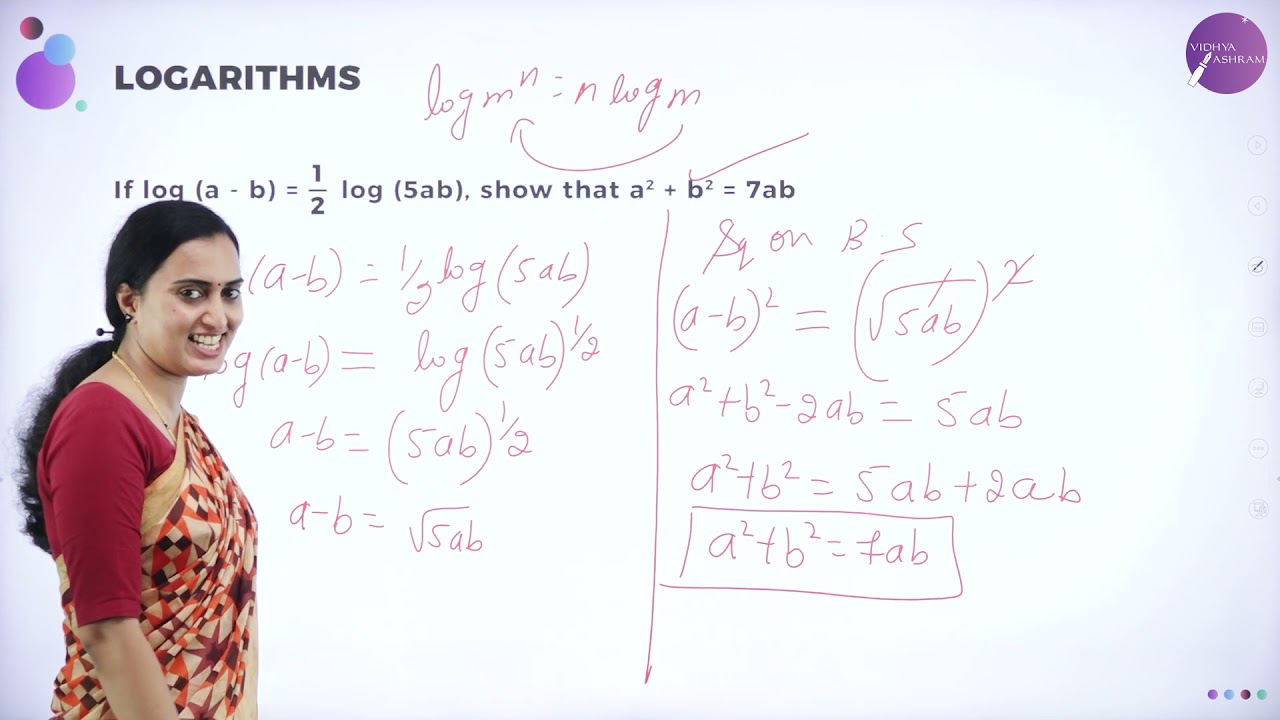 LOGARITHMS
VIDHYA
ASHRAM
log mⁿ = n log m
If log (a - b) = 1/2 log (5ab), show that a² + b² = 7ab
(a-b) = 1/2 log (5ab)
log (a-b) = log (5ab)^1/2
a-b = (5ab)^1/2
a-b = √5ab
Sq on B.S
(a-b)² = (√5ab)²
a²+b²-2ab = 5ab
a²+b² = 5ab+2ab
a²+b² = 7ab